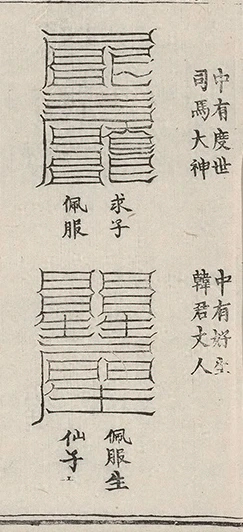 中有度世
司馬大神
求子
佩服
中有好生
韓君丈人
佩服生
仙子